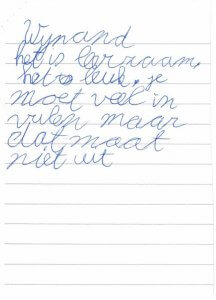 Wynand
het is leerzaam.
het is leuk. je
moet veel in
vulen maar
dat maat
niet uit